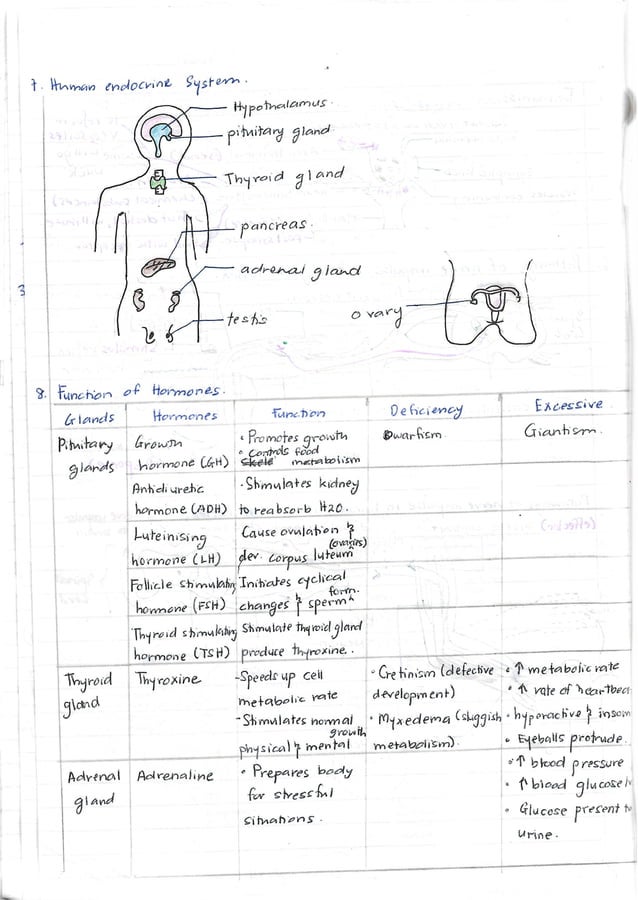 7. Human endocrine System.
Hypothalamus.
pituitary gland.
Thyroid gland
pancreas.
adrenal gland
testis
ovary
3
8. Function of Hormones.
Glands Hormones Function Deficiency Excessive
Pituitary glands
Growth hormone (GH)
• Promotes growth
• Controls food
skele metabolism
Dwarfism
Giantism.
Antidiuretic
hormone (ADH)
• Stimulates kidney
to reabsorb H2O.
Luteinising
hormone (LH)
Cause ovulation &
(ovaries)
dev. corpus luteum
Follicle stimulating
hormone (FSH)
Initiates cyclical
form.
changes & sperm ^
Thyroid stimulating
hormone (TSH)
Stimulate thyroid gland
produce thyroxine.
Thyroid
gland
Thyroxine
-Speeds up cell
metabolic rate
-Stimulates normal
growth
physical & mental
• Cretinism (defective
development)
• Myxedema (sluggish
metabolism).
• ↑ metabolic rate
• ↑ rate of heartbea
• hyporactive & insom
• Eyeballs protrude.
Adrenal
gland
Adrenaline
• Prepares body
for stressful
situations.
• ↑ blood pressure
• ↑ blood glucose
• Glucose present
urine.